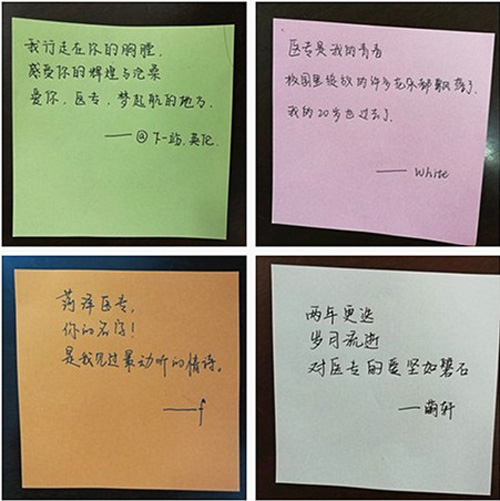 我行走在你的胸膛
感受你的辉煌与沧桑
爱你,医专,梦起航的地方.
——@下一站.英伦.
医专是我的青春
校园里绽放的许多花朵都飘落了
我的20岁也过去了.
——White
菏泽医专,
你的名字!
是我见过最动听的情诗。
——f
两年更迭
岁月流逝
对医专的爱坚如磐石
——萌轩